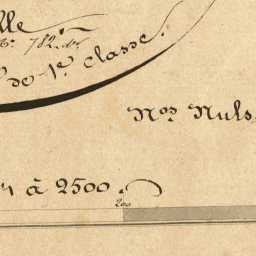 lle
782.
de 1e. Classe.
Nos. Nuls
1 à 2500.
200